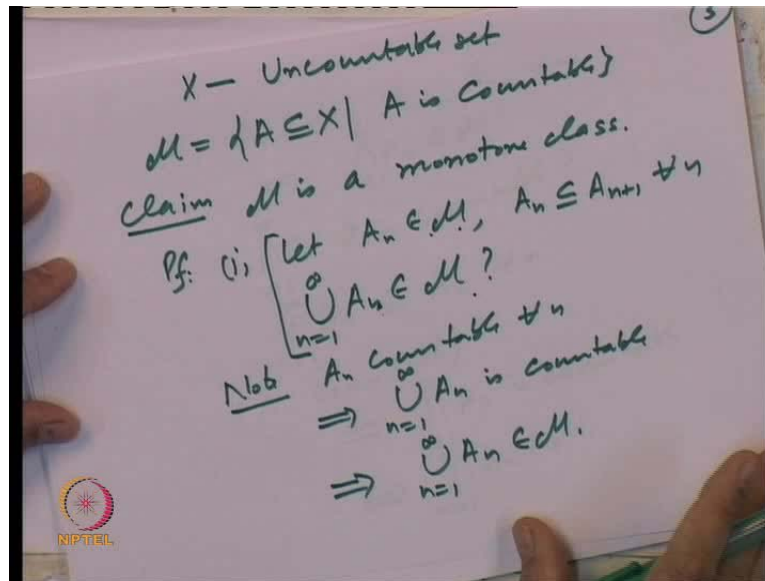 3
X — Uncountable set
M = {A ⊆ X | A is Countable}
Claim M is a monotone class.
Pf: (i) [Let An ∈ M, An ⊆ An+1 ∀ n
∞
∪ An ∈ M?
n=1
Note An countable ∀ n
∞
⇒ ∪ An is countable
n=1
∞
⇒ ∪ An ∈ M.
n=1
NPTEL